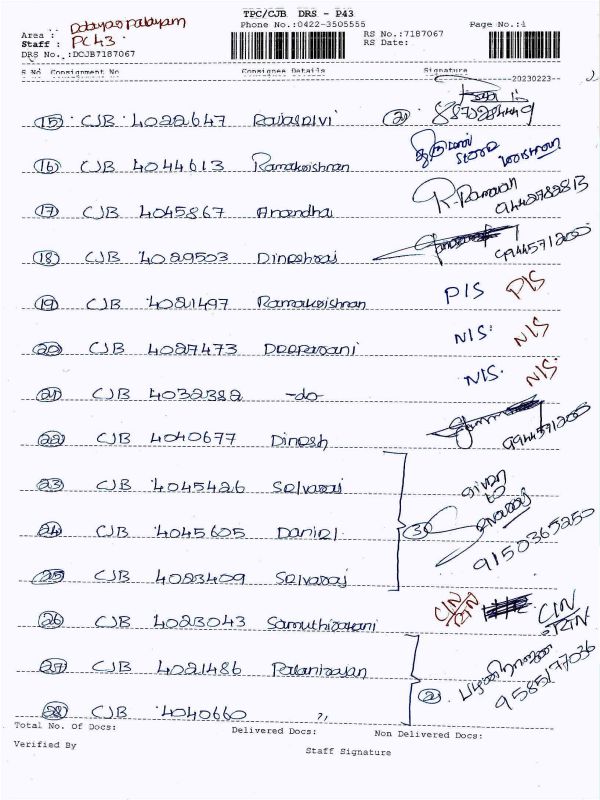 TPC/CJB DRS - P43
Phone No.:0422-3505555
Page No.:1
Area :
Staff : PC 43.
RS No.:7187067
RS Date:
DRS No.:DCJB7187067
S No Consignment No Consignee Details Signature
20230223--
15 CJB 4022647 2
16 CJB 4044613 Ramakrishnan Store
17 CJB 4045867 Anandha R. Raman 9442782813
18 CJB 4029503 Dineshraj 9944571200
19 CJB 4021497 Ramakrishnan PIS PIS
20 CJB 4027473 Deeparani NIS. NIS
21 CJB 4032382 -do- NIS. NIS.
22 CJB 4040677 Dinesh 9944571200
23 CJB 4045426 Selvaraj given to
24 CJB 4045605 Daniel 3 Selvaraj 9150365250
25 CJB 4023409 Selvaraj
26 CJB 4023043 CIN RTN CIN RTN
27 CJB 4021486 பழனிராஜன்
28 CJB 4040660 " 2 9585177036
Total No. Of Docs: Delivered Docs: Non Delivered Docs:
Verified By
Staff Signature